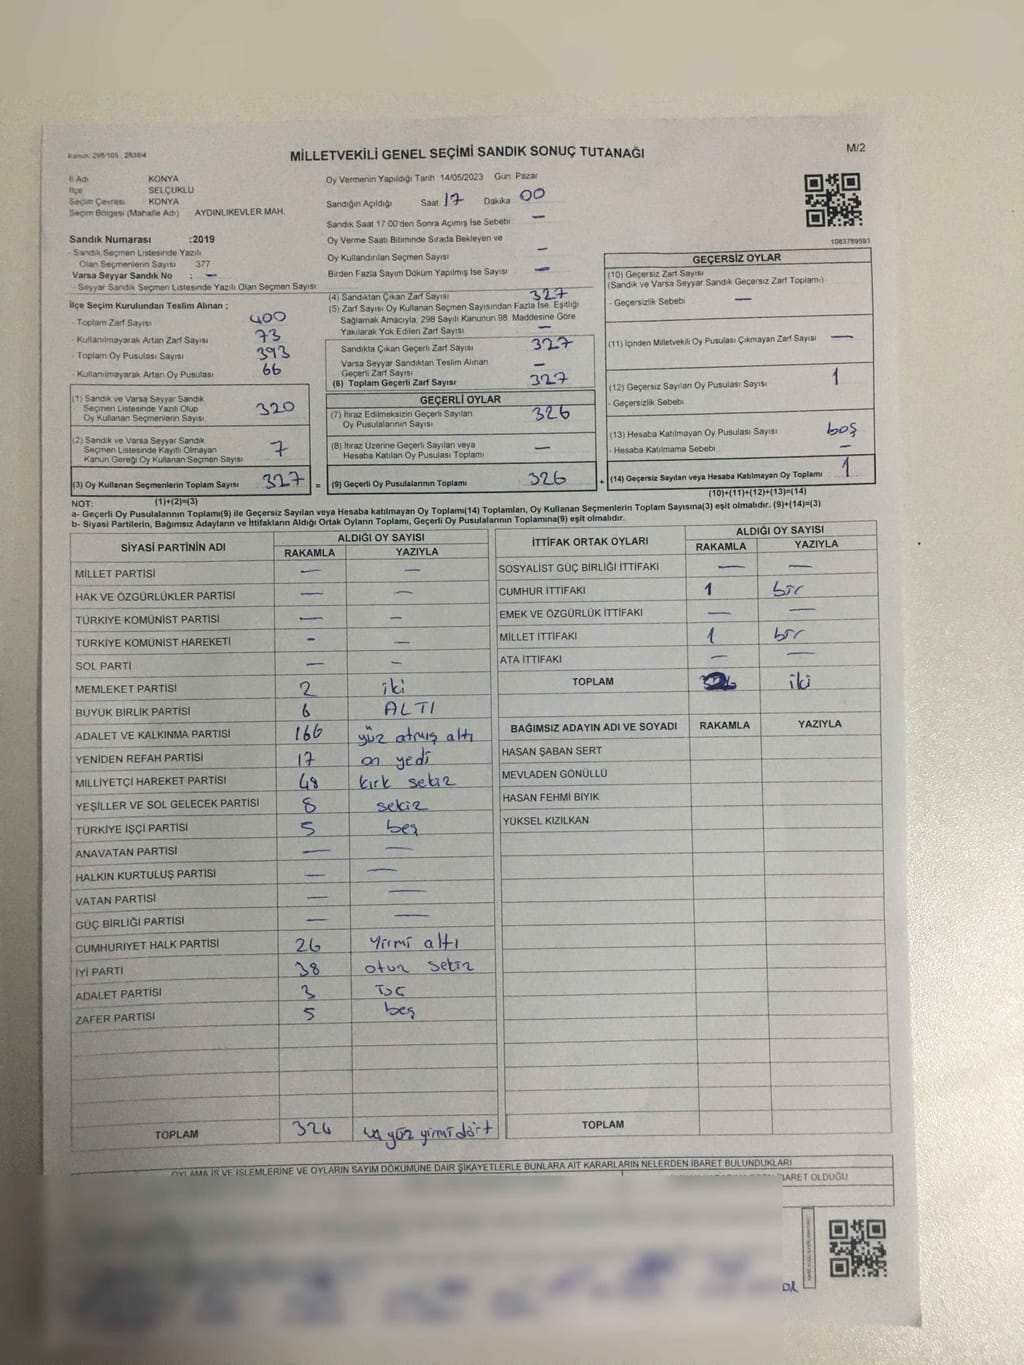 Kanun: 298/105 2839/4
MİLLETVEKİLİ GENEL SEÇİMİ SANDIK SONUÇ TUTANAĞI
M/2
İl Adı KONYA
İlçe SELÇUKLU
Seçim Çevresi KONYA
Seçim Bölgesi (Mahalle Adı) AYDINLIKEVLER MAH.
Sandık Numarası :2019
- Sandık Seçmen Listesinde Yazılı
Olan Seçmenlerin Sayısı 377
Varsa Seyyar Sandık No : —
- Seyyar Sandık Seçmen Listesinde Yazılı Olan Seçmen Sayısı:
Oy Vermenin Yapıldığı Tarih 14/05/2023 Gün: Pazar
Sandığın Açıldığı Saat 17 Dakika 00
Sandık Saat 17:00'den Sonra Açılmış İse Sebebi —
Oy Verme Saati Bitiminde Sırada Bekleyen ve
Oy Kullandırılan Seçmen Sayısı —
Birden Fazla Sayım Döküm Yapılmış İse Sayısı —
1083789593
İlçe Seçim Kurulundan Teslim Alınan ;
- Toplam Zarf Sayısı 400
- Kullanılmayarak Artan Zarf Sayısı 73
- Toplam Oy Pusulası Sayısı 393
- Kullanılmayarak Artan Oy Pusulası 66
(1) Sandık ve Varsa Seyyar Sandık
Seçmen Listesinde Yazılı Olup
Oy Kullanan Seçmenlerin Sayısı 320
(2) Sandık ve Varsa Seyyar Sandık
Seçmen Listesinde Kayıtlı Olmayan
Kanun Gereği Oy Kullanan Seçmen Sayısı 7
(3) Oy Kullanan Seçmenlerin Toplam Sayısı 327 =
(1)+(2)=(3)
(4) Sandıktan Çıkan Zarf Sayısı 327
(5) Zarf Sayısı Oy Kullanan Seçmen Sayısından Fazla İse, Eşitliği
Sağlamak Amacıyla; 298 Sayılı Kanunun 98. Maddesine Göre
Yakılarak Yok Edilen Zarf Sayısı —
Sandıkta Çıkan Geçerli Zarf Sayısı 327
Varsa Seyyar Sandıktan Teslim Alınan
Geçerli Zarf Sayısı —
(6) Toplam Geçerli Zarf Sayısı 327
GEÇERLİ OYLAR
(7) İtiraz Edilmeksizin Geçerli Sayılan
Oy Pusulalarının Sayısı 326
(8) İtiraz Üzerine Geçerli Sayılan veya
Hesaba Katılan Oy Pusulası Toplamı —
(9) Geçerli Oy Pusulalarının Toplamı 326 +
GEÇERSİZ OYLAR
(10) Geçersiz Zarf Sayısı
(Sandık ve Varsa Seyyar Sandık Geçersiz Zarf Toplamı)
- Geçersizlik Sebebi —
(11) İçinden Milletvekili Oy Pusulası Çıkmayan Zarf Sayısı —
(12) Geçersiz Sayılan Oy Pusulası Sayısı 1
- Geçersizlik Sebebi
(13) Hesaba Katılmayan Oy Pusulası Sayısı boş
- Hesaba Katılmama Sebebi —
(14) Geçersiz Sayılan veya Hesaba Katılmayan Oy Toplamı 1
(10)+(11)+(12)+(13)=(14)
NOT:
a- Geçerli Oy Pusulalarının Toplamı(9) ile Geçersiz Sayılan veya Hesaba katılmayan Oy Toplamı(14) Toplamları, Oy Kullanan Seçmenlerin Toplam Sayısına(3) eşit olmalıdır. (9)+(14)=(3)
b- Siyasi Partilerin, Bağımsız Adayların ve İttifakların Aldığı Ortak Oyların Toplamı, Geçerli Oy Pusulalarının Toplamına(9) eşit olmalıdır.
SİYASİ PARTİNİN ADI ALDIĞI OY SAYISI
RAKAMLA YAZIYLA
MİLLET PARTİSİ — —
HAK VE ÖZGÜRLÜKLER PARTİSİ — —
TÜRKİYE KOMÜNİST PARTİSİ — —
TÜRKİYE KOMÜNİST HAREKETİ - —
SOL PARTİ — -
MEMLEKET PARTİSİ 2 iki
BÜYÜK BİRLİK PARTİSİ 6 ALTI
ADALET VE KALKINMA PARTİSİ 166 yüz atmış altı
YENİDEN REFAH PARTİSİ 17 on yedi
MİLLİYETÇİ HAREKET PARTİSİ 48 kırk sekiz
YEŞİLLER VE SOL GELECEK PARTİSİ 8 sekiz
TÜRKİYE İŞÇİ PARTİSİ 5 beş
ANAVATAN PARTİSİ — —
HALKIN KURTULUŞ PARTİSİ — —
VATAN PARTİSİ — —
GÜÇ BİRLİĞİ PARTİSİ — —
CUMHURİYET HALK PARTİSİ 26 Yirmi altı
İYİ PARTİ 38 otuz sekiz
ADALET PARTİSİ 3 üç
ZAFER PARTİSİ 5 beş
TOPLAM 324 üç yüz yirmi dört
İTTİFAK ORTAK OYLARI ALDIĞI OY SAYISI
RAKAMLA YAZIYLA
SOSYALİST GÜÇ BİRLİĞİ İTTİFAKI — —
CUMHUR İTTİFAKI 1 bir
EMEK VE ÖZGÜRLÜK İTTİFAKI — —
MİLLET İTTİFAKI 1 bir
ATA İTTİFAKI — —
TOPLAM iki
BAĞIMSIZ ADAYIN ADI VE SOYADI RAKAMLA YAZIYLA
HASAN ŞABAN SERT
MEVLADEN GÖNÜLLÜ
HASAN FEHMİ BIYIK
YÜKSEL KIZILKAN
TOPLAM
OYLAMA İŞ VE İŞLEMLERİNE VE OYLARIN SAYIM DÖKÜMÜNE DAİR ŞİKAYETLERLE BUNLARA AİT KARARLARIN NELERDEN İBARET BULUNDUKLARI
İBARET OLDUĞU